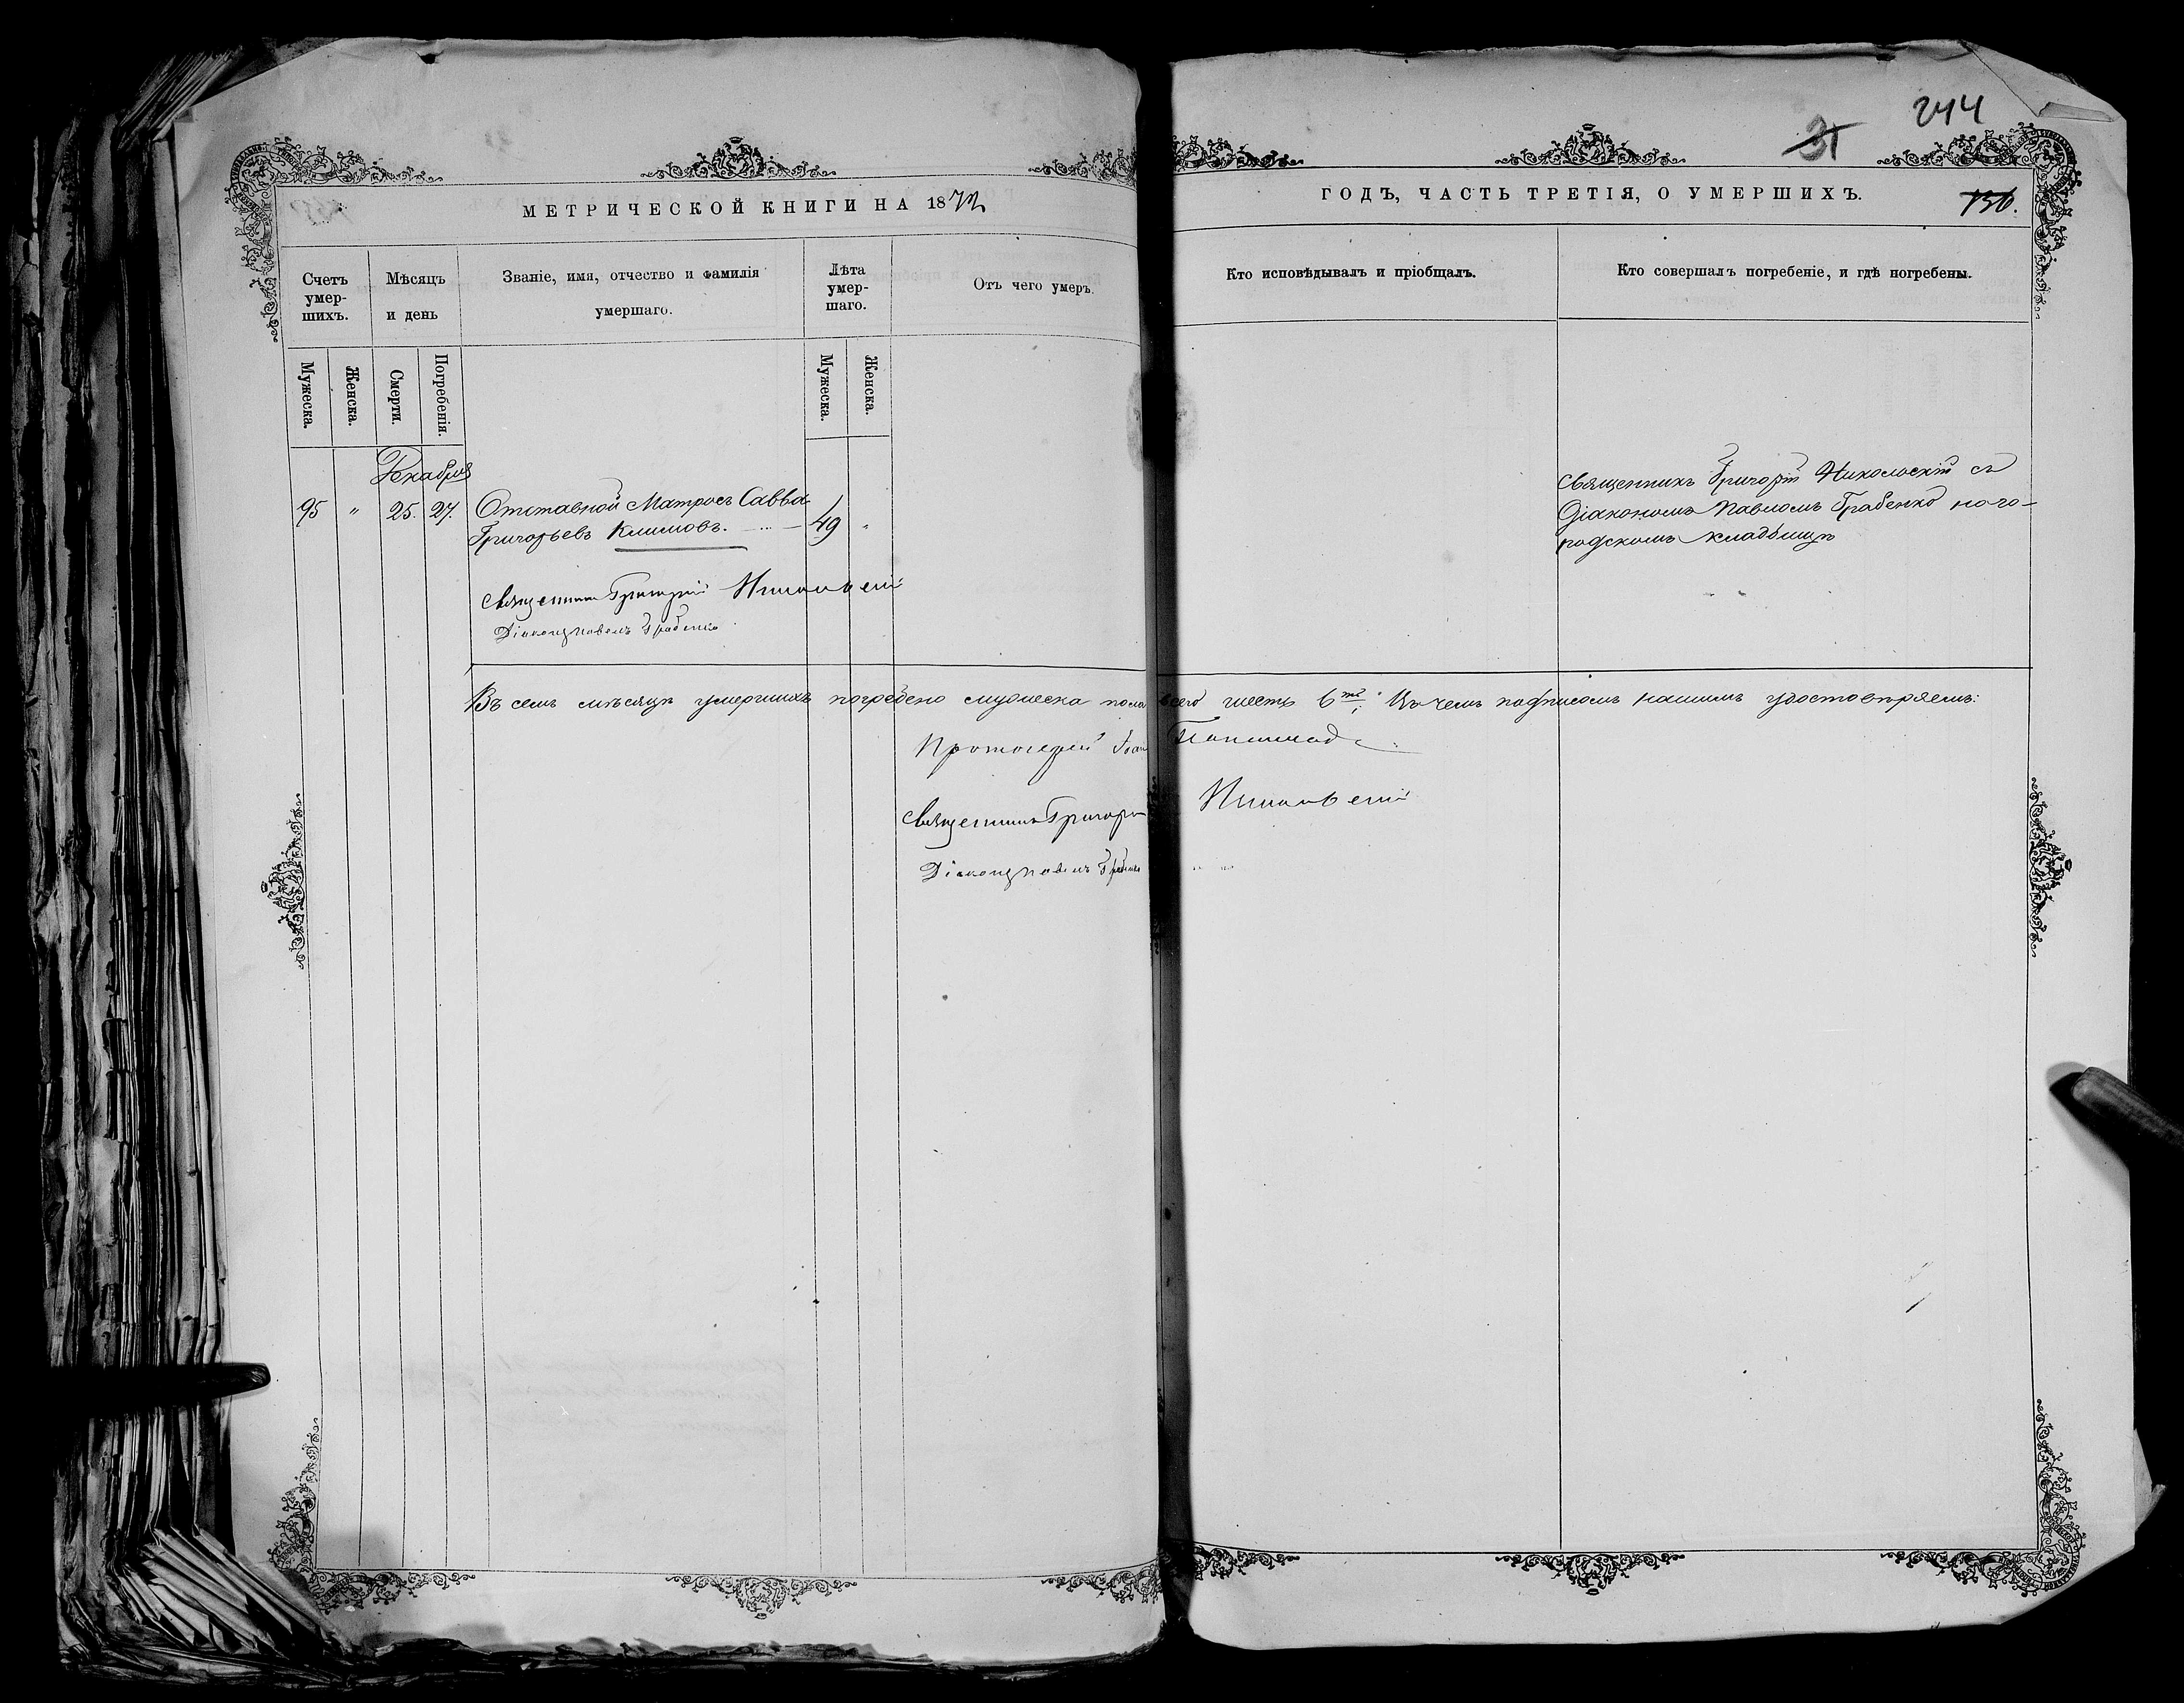 244
31
МЕТРИЧЕСКОЙ КНИГИ НА 1872
ГОДЪ, ЧАСТЬ ТРЕТІЯ, О УМЕРШИХЪ.
136.
Счетъ умер-шихъ.
Мѣсяцъ и день
Званіе, имя, отчество и фамилія умершаго.
Лѣта умер-шаго.
Отъ чего умеръ.
Кто исповѣдывалъ и пріобщалъ.
Кто совершалъ погребеніе, и гдѣ погребены.
Мужеска.
Женска.
Смерти.
Погребенія.
Мужеска.
Женска.
Декабря
95 " 25. 27. Отставной Матросъ Савва
Григорьевъ Климовъ. 49 "
Священникъ Григорій Никольскій съ
Діакономъ Павломъ Грабенко на го-
родскомъ кладбищѣ
Священникъ Григорій Никольскій
Діаконъ Павелъ Грабенко
Въ семъ мѣсяцѣ умершихъ погребено мужеска пола всего шесть 6ть. Въ чемъ подписомъ нашимъ удостовѣряемъ:
Протоіерей
Священникъ Григорій Никольскій
Діаконъ Павелъ Грабенко